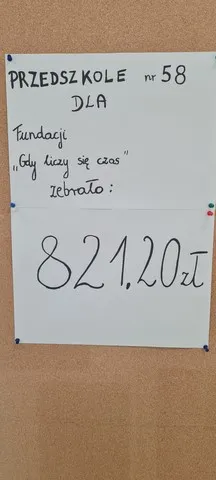 PRZEDSZKOLE nr 58
DLA
Fundacji
„Gdy liczy się czas"
zebrało:
821.20zł